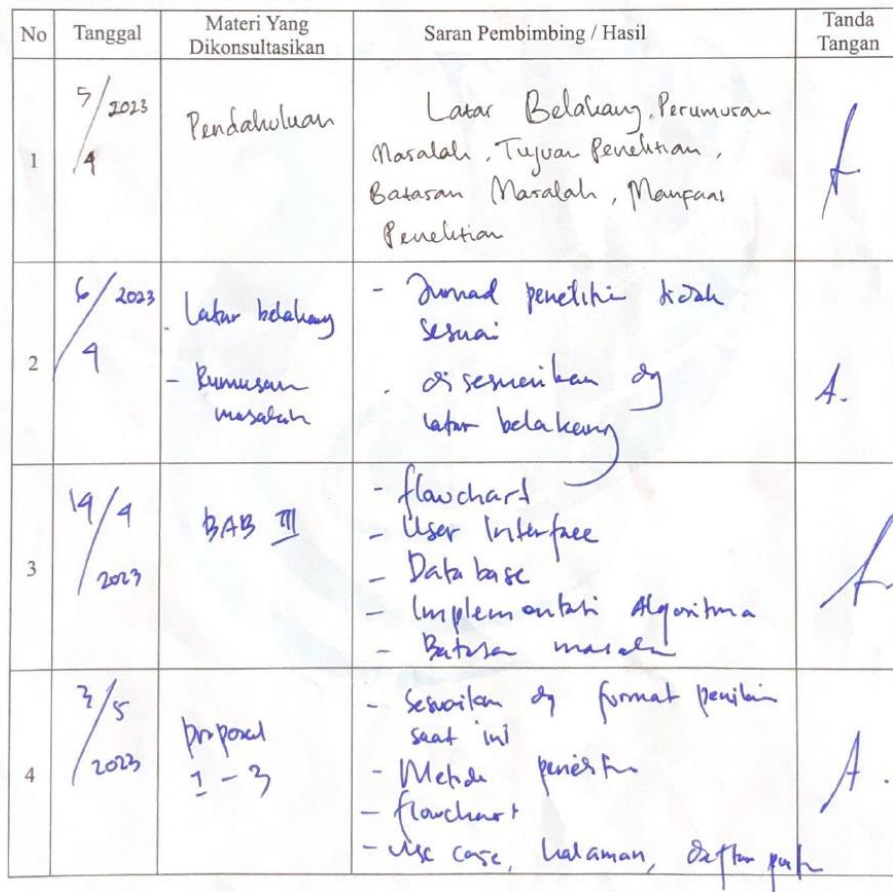 No Tanggal Materi Yang Dikonsultasikan Saran Pembimbing / Hasil Tanda Tangan
1
5/4 2023
Pendahuluan
Latar Belakang, Perumusan
Masalah, Tujuan Penelitian,
Batasan Masalah, Manfaat
Penelitian
2
6/4 2023
Latar belakang
- Rumusan
masalah
- Jurnal penelitin tidak
sesuai
- disesuaikan dg
latar belakang
3
19/4
2023
BAB III
- flowchart
- User Interface
- Database
- Implementasi Algoritma
- Batasan masalah
4
3/5
2023
proposal
1 - 3
- Sesuaikan dg format
saat ini
- Metode
- flowchart
- use case, halaman, daftar